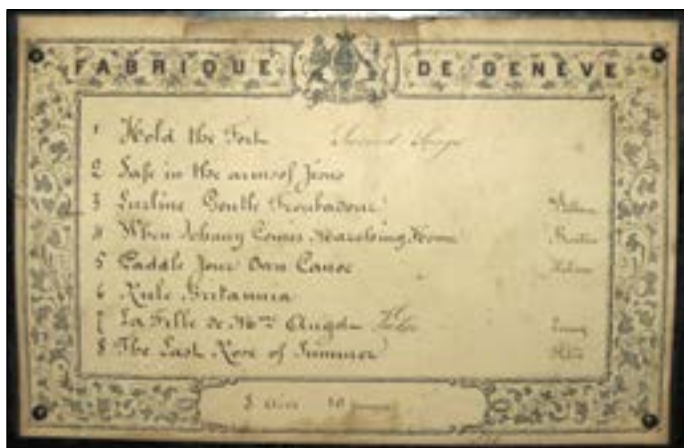 FABRIQUE DE GENÈVE
1 Hold the Fort
2 Safe in the arms of Jesus
3 Lurline Gentle Troubadour
4 When Johnny Comes Marching Home
5 Paddle Your Own Canoe
6 Rule Britannia
7 La Fille de Mme Angot
8 The Last Rose of Summer
8 Airs